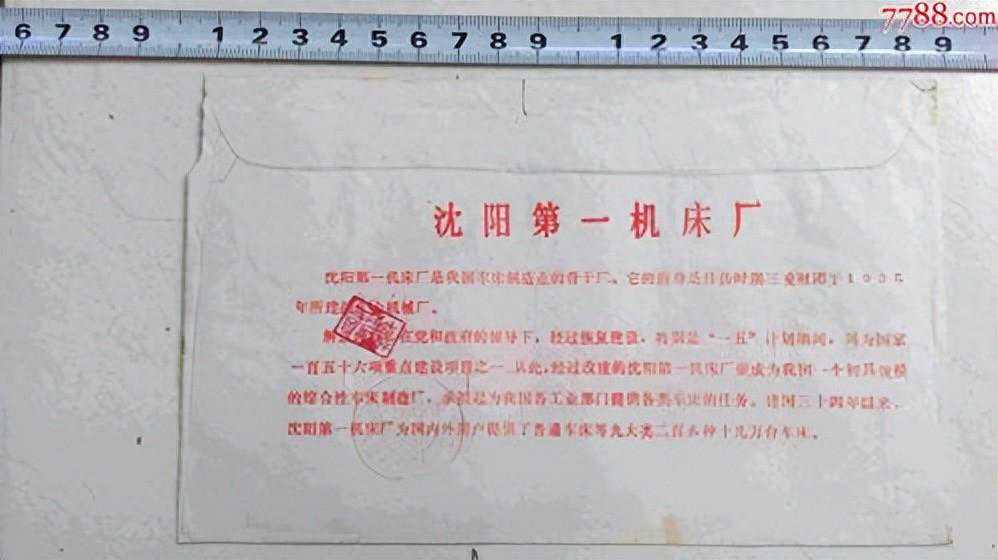 7788.com
6 7 8 9 1 2 3 4 5 6 7 8 9 1 2 3 4 5 6 7 8 9
沈阳第一机床厂
沈阳第一机床厂是我国车床制造业的骨干厂。它的前身是日伪时期三菱财团于1935
年所建 机械厂。
解 在党和政府的领导下，经过恢复建设，特别是“一五”计划期间，列为国家
一百五十六项重点建设项目之一。从此，经过改建的沈阳第一机床厂便成为我国一个初具规模
的综合性车床制造厂，承担为我国各工业部门提供各类车床的任务。建国三十四年以来，
沈阳第一机床厂为国内外用户提供了普通车床等九大类二百多种十几万台车床。